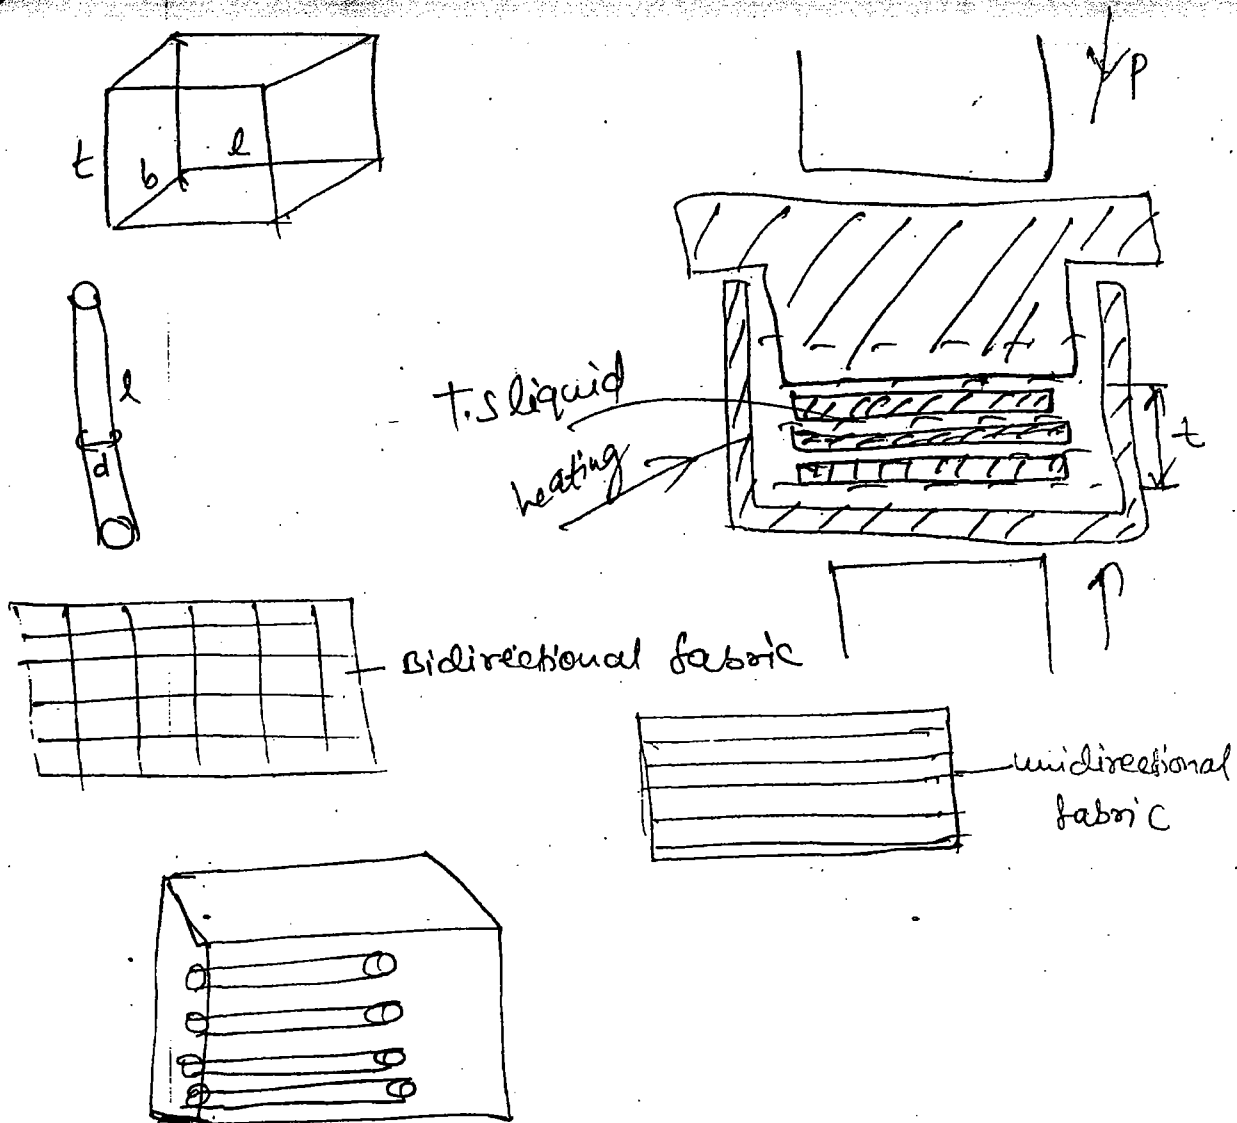 t
b
l
P
l
d
T.S liquid
heating
t
Bidirectional fabric
unidirectional
fabric